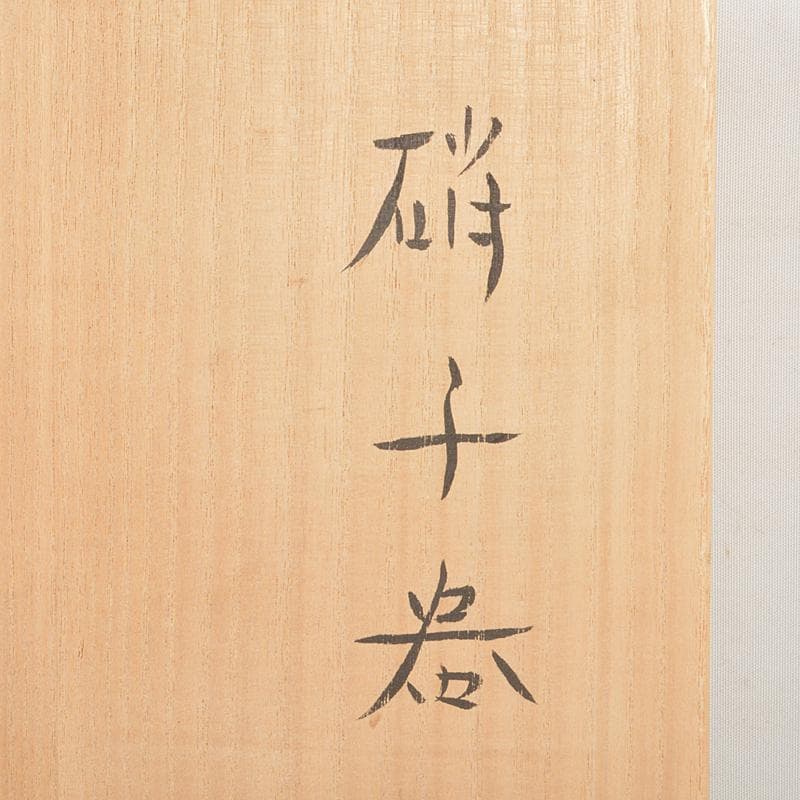 硝子器